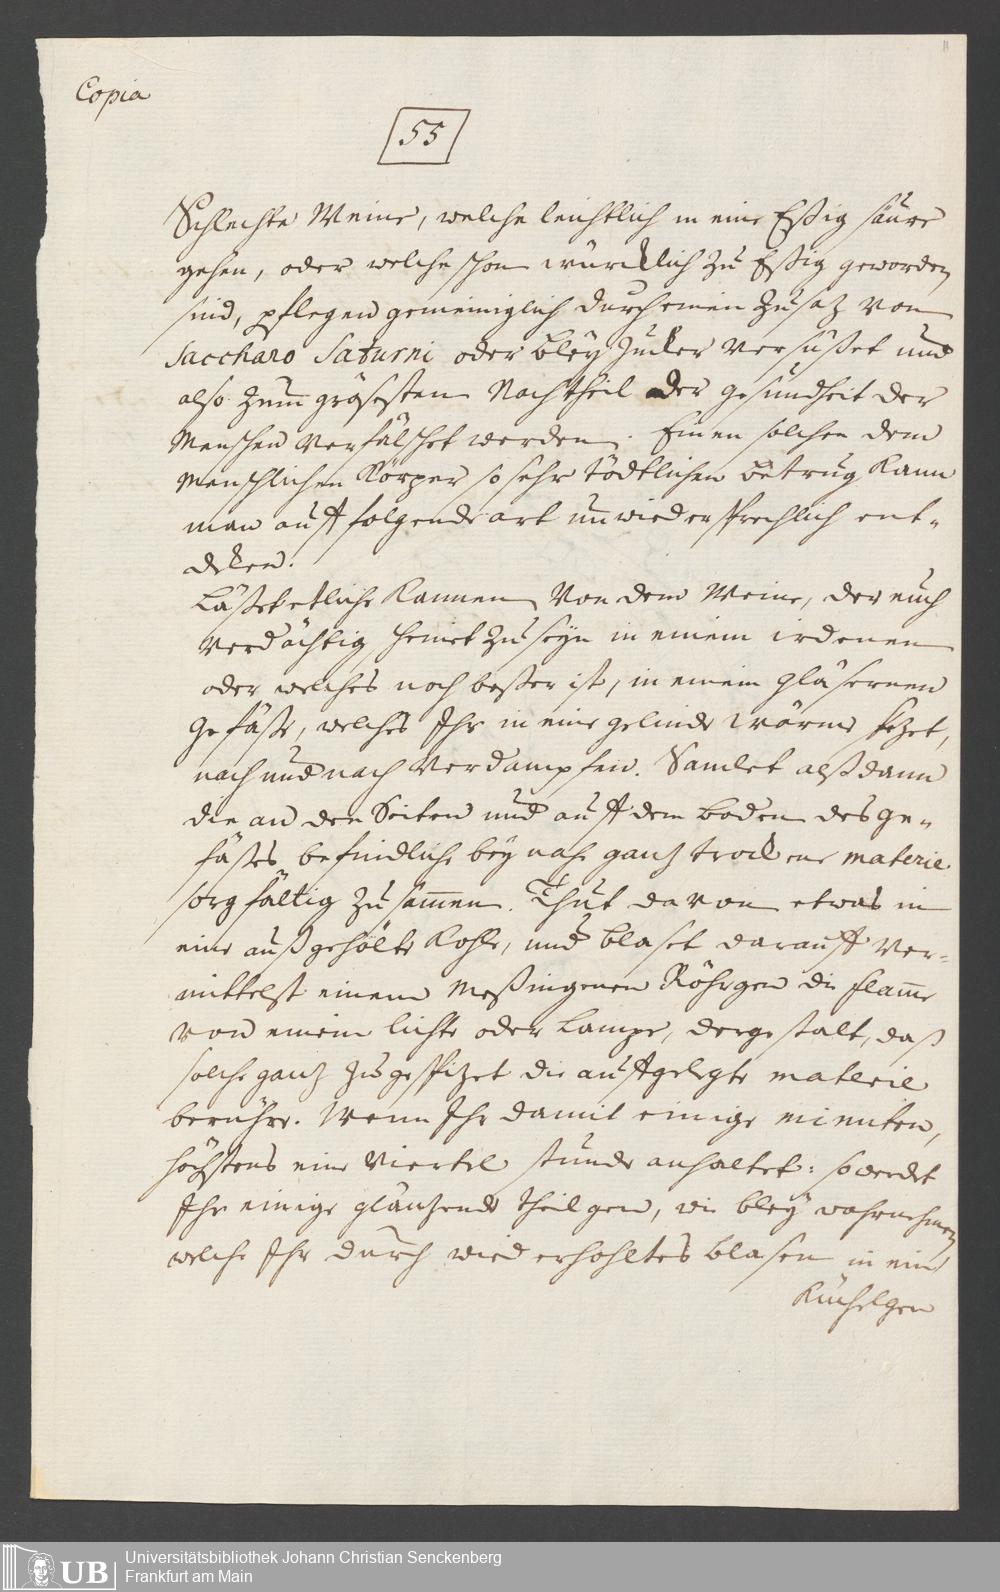 Copia
55
Schlechte Weine, welche leichtlich in eine Eßig säure
gehen, oder welche schon würcklich zu Eßig geworden
sind, pflegen gemeiniglich durch einen Zusaz von
Saccharo Saturni oder bley Zucker versüßet und
also zum̄ grösesten Nachtheil der gesundheit der
Menschen verfälschet werden. Einen solchen dem
Menschlichen Körper so sehr tödtlichen betrug kann
man auff folgende art unwiedersprechlich ent-
decken.
Laßet etliche Kannen von dem Weine, der euch
verdächtig scheinet zu seyn in einem irdenen
oder welches noch beßer ist, in einem gläsernen
gefäße, welches Ihr in eine gelinde wärme sezet,
nach und nach verdampfen. Samlet alßdann
die an den Seiten und auff dem boden des ge-
fäßes befindliche bey nahe ganz trockene materie
sorgfältig zusam̄en. Thut davon etwas in
eine außgehölte Kohle, und blaset darauff ver-
mittelst einem Meßingenen Röhrgen die flam̄e
von einem lichte oder Lampe, dergestalt, daß
solche ganz zugespizet die auffgelegte materie
berühre. Wenn Ihr damit einige minuten,
höchstens eine Viertel stunde anhaltet: so werdet
Ihr einige gläntzende theilgen, wie bley wahrnehmen
welche Ihr durch wiederhohltes blasen in ein
Küchelgen
Universitätsbibliothek Johann Christian Senckenberg
Frankfurt am Main
UB